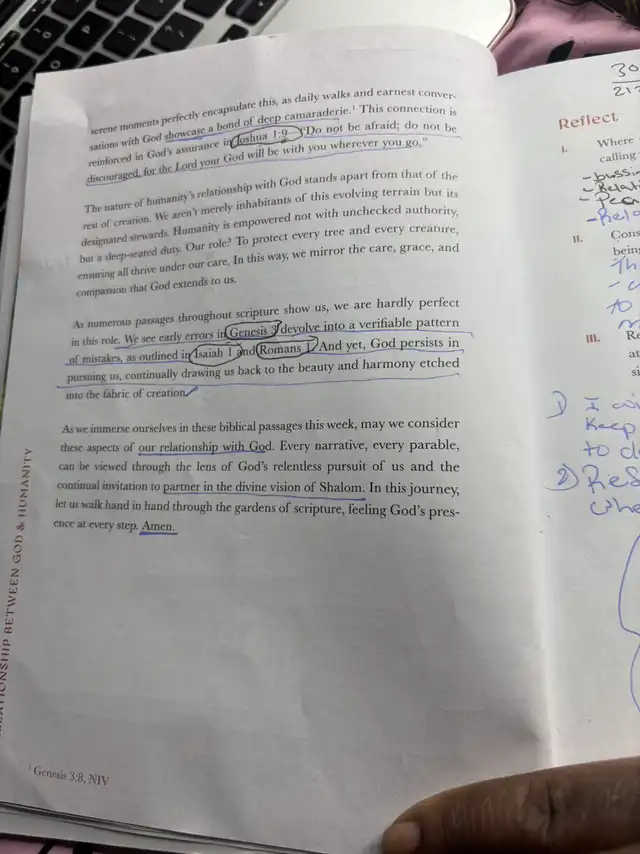 serene moments perfectly encapsulate this, as daily walks and earnest conver-
sations with God showcase a bond of deep camaraderie.¹ This connection is
reinforced in God's assurance in Joshua 1:9 "Do not be afraid; do not be
discouraged, for the Lord your God will be with you wherever you go."
The nature of humanity's relationship with God stands apart from that of the
rest of creation. We aren't merely inhabitants of this evolving terrain but its
designated stewards. Humanity is empowered not with unchecked authority,
but a deep-seated duty. Our role? To protect every tree and every creature,
ensuring all thrive under our care. In this way, we mirror the care, grace, and
compassion that God extends to us.
As numerous passages throughout scripture show us, we are hardly perfect
in this role. We see early errors in Genesis 3 devolve into a verifiable pattern
of mistakes, as outlined in Isaiah 1 and Romans 1. And yet, God persists in
pursuing us, continually drawing us back to the beauty and harmony etched
into the fabric of creation.
As we immerse ourselves in these biblical passages this week, may we consider
these aspects of our relationship with God. Every narrative, every parable,
can be viewed through the lens of God's relentless pursuit of us and the
continual invitation to partner in the divine vision of Shalom. In this journey,
let us walk hand in hand through the gardens of scripture, feeling God's pres-
ence at every step. Amen.
¹ Genesis 3:8, NIV
RELATIONSHIP BETWEEN GOD & HUMANITY
30
Reflect
I. Where
calling
II. Cons
being
Th
to
III. Re
at
si
1) I
Keep
to
2)